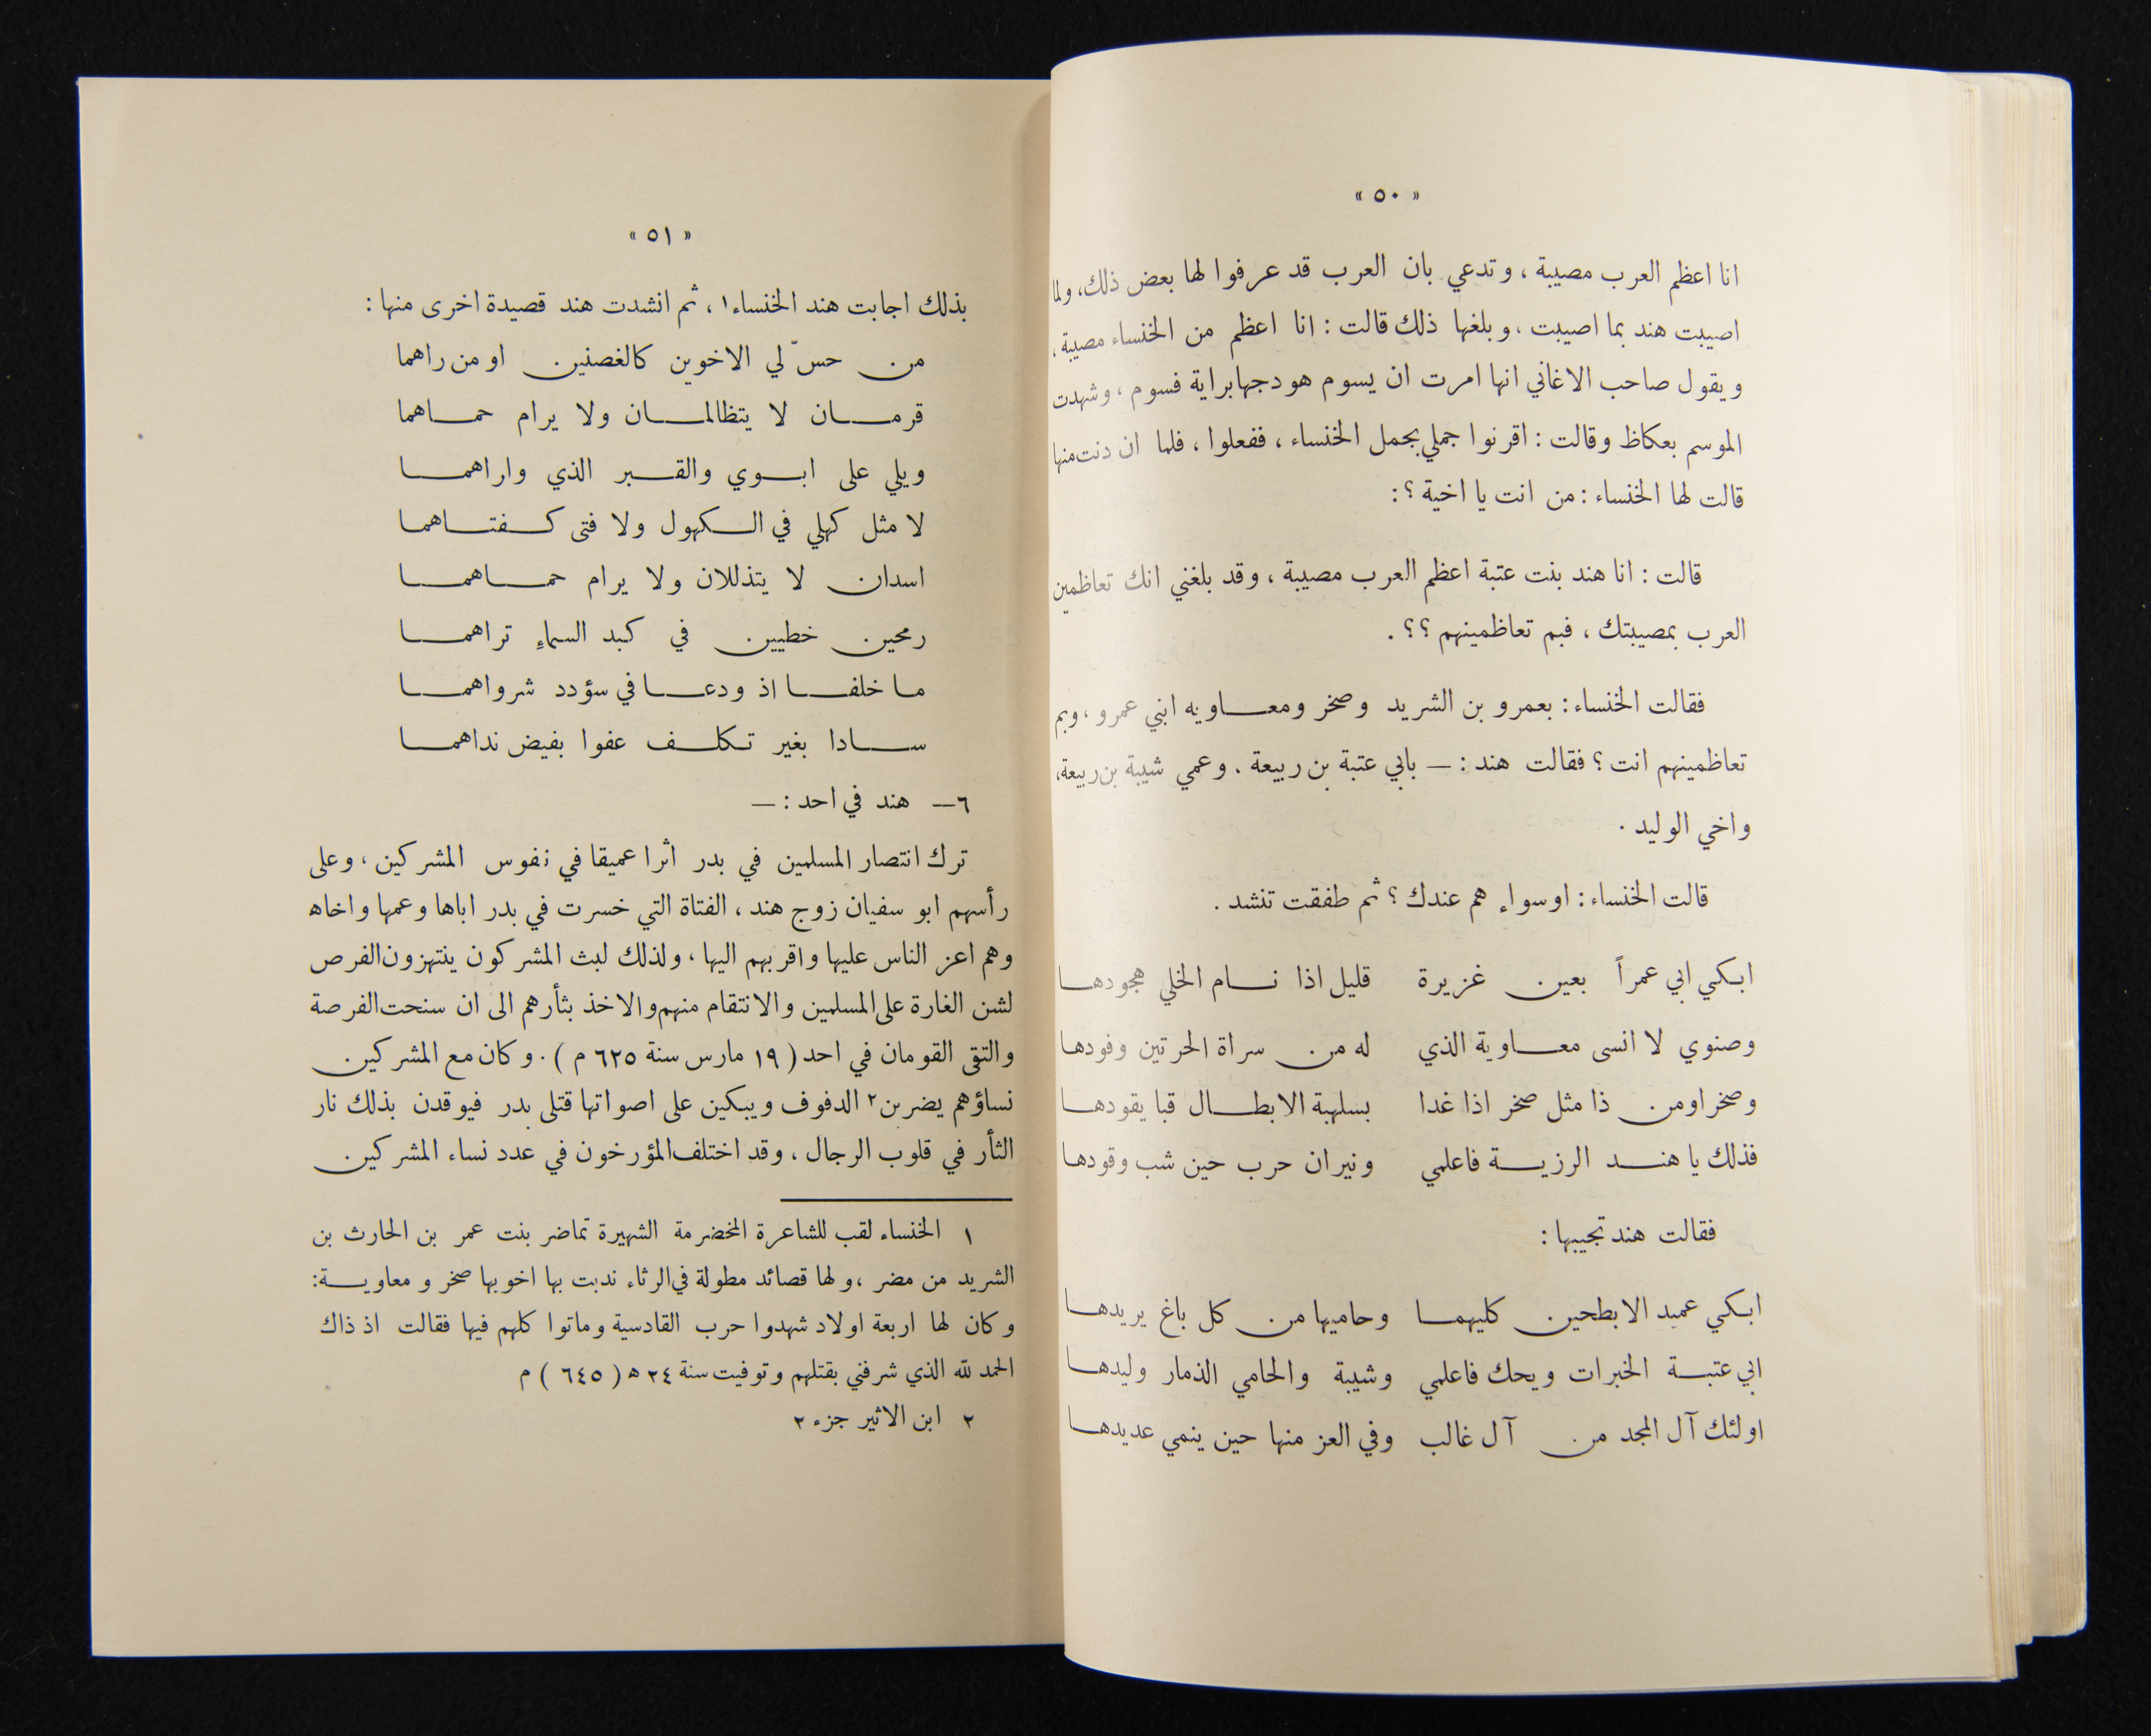 « ٥٠ »
انا اعظم العرب مصيبة ، وتدعي بان العرب قد عرفوا لها بعض ذلك، ولما
اصيبت هند بما اصيبت ، وبلغها ذلك قالت : انا اعظم من الخنساء مصيبة ،
ويقول صاحب الاغاني انها امرت ان يسوم هودجها براية فسوم ، وشهدت
الموسم بعكاظ وقالت : اقرنوا جملي بجمل الخنساء ، ففعلوا ، فلما ان دنت منها
قالت لها الخنساء : من انت يا اخية ؟ :
قالت : انا هند بنت عتبة اعظم العرب مصيبة ، وقد بلغني انك تعاظمين
العرب بمصيبتك ، فبم تعاظمينهم ؟؟ .
فقالت الخنساء : بعمرو بن الشريد وصخر ومعاويه ابني عمرو ، وبم
تعاظمينهم انت ؟ فقالت هند : — بابي عتبة بن ربيعة . وعمي شيبة بن ربيعة،
واخي الوليد .
قالت الخنساء : اوسواء هم عندك ؟ ثم طفقت تنشد .
ابكي ابي عمراً بعين غزيرة قليل اذا نام الخلي هجودها
وصنوي لا انسى معاوية الذي له من سراة الحرتين وفودها
وصخرا ومن ذا مثل صخر اذا غدا بسلهبة الابطال قبا يقودها
فذلك يا هند الرزية فاعلمي ونيران حرب حين شب وقودها
فقالت هند تجيبها :
ابكي عميد الابطحين كليهما وحاميها من كل باغ يريدها
ابي عتبة الخبرات ويحك فاعلمي وشيبة والحامي الذمار وليدها
اولئك آل المجد من آل غالب وفي العز منها حين ينمي عديدها
« ٥١ »
بذلك اجابت هند الخنساء١ ، ثم انشدت هند قصيدة اخرى منها :
من حسّ لي الاخوين كالغصنين او من راهما
قرمان لا يتظالمان ولا يرام حماهما
ويلي على ابوي والقبر الذي واراهما
لا مثل كهلي في الكهول ولا فتى كفتاهما
اسدان لا يتذللان ولا يرام حماهما
رمحين خطيين في كبد السماء تراهما
ما خلفا اذ ودعا في سؤدد شرواهما
سادا بغير تكلف عفوا بفيض نداهما
٦— هند في احد : —
ترك انتصار المسلمين في بدر اثرا عميقا في نفوس المشركين ، وعلى
رأسهم ابو سفيان زوج هند ، الفتاة التي خسرت في بدر اباها وعمها واخاه
وهم اعز الناس عليها واقربهم اليها ، ولذلك لبث المشركون ينتهزون الفرص
لشن الغارة على المسلمين والانتقام منهم والاخذ بثأرهم الى ان سنحت الفرصة
والتقى القومان في احد ( ١٩ مارس سنة ٦٢٥ م ) . وكان مع المشركين
نساؤهم يضربن٢ الدفوف ويبكين على اصواتها قتلى بدر فيوقدن بذلك نار
الثأر في قلوب الرجال ، وقد اختلف المؤرخون في عدد نساء المشركين
١ الخنساء لقب للشاعرة المخضرمة الشهيرة تماضر بنت عمر بن الحارث بن
الشريد من مضر ، ولها قصائد مطولة في الرثاء ندبت بها اخويها صخر و معاوية :
وكان لها اربعة اولاد شهدوا حرب القادسية وماتوا كلهم فيها فقالت اذ ذاك
الحمد لله الذي شرفني بقتلهم وتوفيت سنة ٢٤ ه ( ٦٤٥ ) م
٢ ابن الاثير جزء ٢